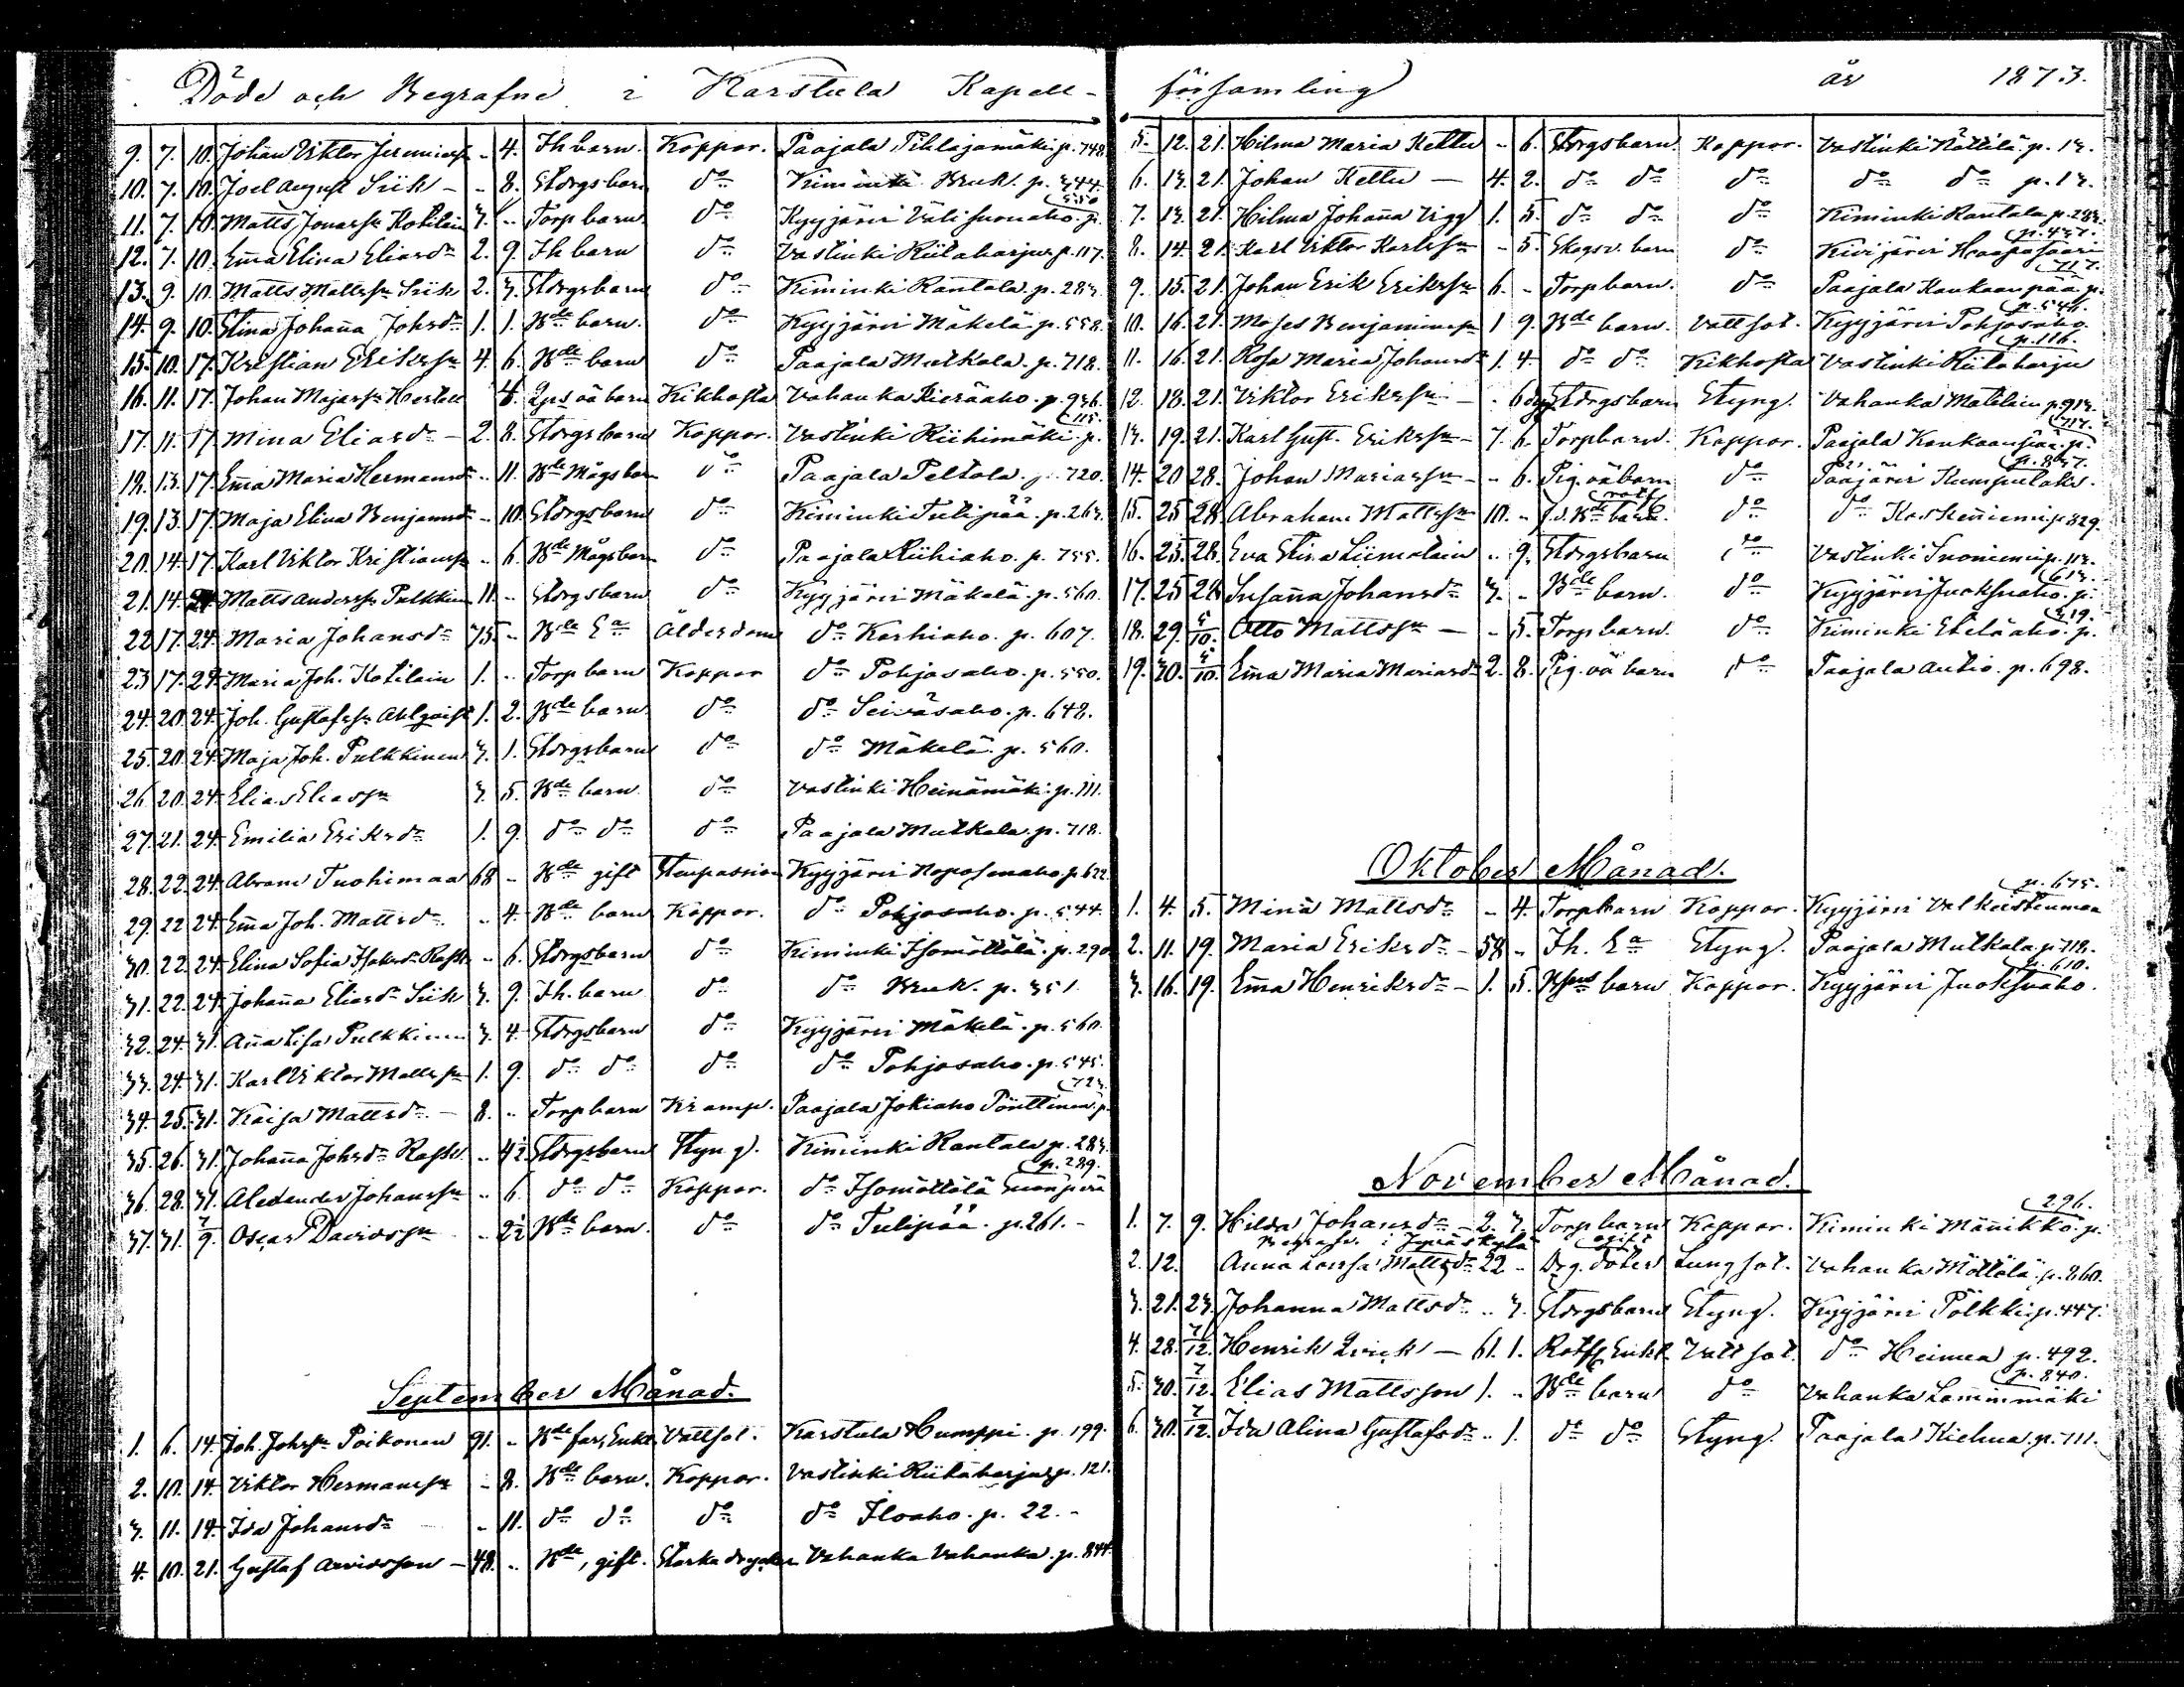 Döde och Begrafne i Karstula Kapell-
9. 7. 10. Johan Viktor Jeremiass. - 4. Ih barn. Koppor. Paajala Pihlajamäki p. 748
10. 7. 10. Joel August Siik - - 8. Storgsbarn do Kiminki Bruk. p. 344.
11. 7. 10. Matts Jonass. Kotilain 3. - Torpbarn do Kyyjärvi Välisuonaho. p. 550
12. 7. 10. Em̄a Elina Eliasdr 2. 9. Ih barn do Vastinki Riitaharju p. 117.
13. 9. 10. Matts Mattss. Siik 2. 3. Storgsbarn do Kiminki Rantala. p. 283.
14. 9. 10. Stina Johan̄a Johsdr 1. 1. Bde barn. do Kyyjärvi Mäkelä. p. 558.
15. 10. 17. Kristian Erikss. 4. 6. Bde barn do Paajala Mutkala. p. 718.
16. 11. 17. Johan Majass. 4. oä barn Kikhosta Vahanka Kieräaho. p. 936.
17. 11. 17. Mina Eliasdr - 2. 8. Storgsbarn Koppor. Vastinki Riihimäki p. 115.
18. 13. 17. Em̄a Maria Hermansdr - 11. Bde Mågsbarn do Paajala Peltola. p. 720.
19. 13. 17. Maja Elina Benjamsdr - 10. Storgsbarn do Kiminki Tulipää. p. 263.
20. 14. 17. Karl Viktor Kristianss. - 6. Bde Mågsbarn do Paajala Riihiaho. p. 755.
21. 14. 24. Matts Anderss. Pulkkin 11. - Storgsbarn do Kyyjärvi Mäkelä. p. 560.
22. 17. 24. Maria Johansdr 75. - Bde Ea Ålderdom do Karhiaho. p. 607.
23. 17. 24. Maria Joh. Kotilain 1. - Torpbarn Koppor do Pohjosaho. p. 550.
24. 20. 24. Joh. Gustafss. Ahlqvist 1. 2. Bde barn do do Seiväsaho. p. 648.
25. 20. 24. Maja Joh. Pulkkinen 3. 1. Storgsbarn do do Mäkelä. p. 560.
26. 20. 24. Elias Eliass. 3. 5. Bde barn do Vastinki Heinämäki. p. 111.
27. 21. 24. Emilia Eriksdr 1. 9. do do do Paajala Mutkala. p. 718.
28. 22. 24. Abram Tuohimaa 68 - Bde gift Stenpassion Kyyjärvi Noposenaho p. 622.
29. 22. 24. Em̄a Joh. Mattsdr - 4. Bde barn Koppor. do Pohjosaho. p. 544.
30. 22. 24. Elina Sofia - 6. Storgsbarn do Kiminki Isomöttölä. p. 290
31. 22. 24. Johan̄a Eliasdr Siik 3. 9. Ih. barn do do Bruk. p. 351.
32. 24. 31. An̄a Lisa Pulkkinen 3. 4. Storgsbarn do Kyyjärvi Mäkelä. p. 560.
33. 24. 31. Karl Viktor Mattss. 1. 9. do do do do Pohjosaho. p. 545.
34. 25. 31. Kaisa Mattsdr - 8. - Torpbarn Kramp. Paajala Jokiaho Pönttinen. p. 723.
35. 26. 31. Johan̄a Johsdr Rask. - 4½ Storgsbarn Styng. Kiminki Rantala p. 283.
36. 28. 31. Alexander Johanss. - 6. do do Koppor. do Isomöttölä p. 289.
37. 31. 7/9. Oscar Davidss. - 2½ Bde barn. do do Tulipää. p. 261. -
September Månad.
1. 6. 14. Joh. Johss. Poikonen 91. - Bde far, Enkl. Vattsot. Karstula Humppi. p. 199.
2. 10. 14. Viktor Hermanss. - 8. Bde barn. Koppor. Vastinki Riitaharju p. 121.
3. 11. 14. Ida Johansdr - 11. do do do do Iloaho. p. 22. -
4. 10. 21. Gustaf Arvidsson - 48. - Bde, gift. Starka drycker Vahanka Vahanka. p. 844.
församling år 1873.
5. 12. 21. Hilma Maria Kettu - 6. Storgsbarn Koppor. Vastinki p. 13.
6. 13. 21. Johan Kettu - 4. 2. do do do do do p. 13.
7. 13. 21. Hilma Johan̄a Vigg 1. 5. do do do Kiminki Rantala p. 283.
8. 14. 21. Karl Viktor Karlss. - 5. Skogsv. barn do Kivijärvi Haapasaari p. 437.
9. 15. 21. Johan Erik Erikss. 6. - Torpbarn. do Paajala Kaukaanpää p. 717.
10. 16. 21. Moses Benjaminss. 1 9. Bde barn. Vattsot. Kyyjärvi Pohjosaho. p. 546.
11. 16. 21. Rosa Maria Johansdr 1. 4. do do Kikhosta Vastinki Riitaharju p. 116.
12. 18. 21. Viktor Erikss. - - 6 dyg Storgsbarn Styng. Vahanka Matilain p. 913.
13. 19. 21. Karl Gust. Erikss. - 7. 6. Torpbarn. Koppor. Paajala Kaukaanpää. p. 717.
14. 20 28. Johan Mariass. - - 6. Pig. oäbarn do Pääjärvi Kumpulaks. p. 857.
15. 25 28. Abraham Mattss. 10. - f.d. Bde barn. do do Koskeniemi p. 829.
16. 25. 28. Eva Stina Liimatain - 9. Storgsbarn do Vastinki Suoniemi p. 113.
17. 25 28. Susan̄a Johansdr 3. - Bde barn. do Kyyjärvi Juoksuaho. p. 613.
18. 29. 5/10. Otto Mattss. - - 5. Torpbarn. do Kiminki Eteläaho. p. 319.
19. 30. 5/10. Em̄a Maria Mariasdr 2. 8. Pig. oä barn do Paajala Autio. p. 698.
Oktober Månad.
1. 4. 5. Mina Mattsdr - 4. Torpbarn Koppor. Kyyjärvi Valkeistenmaa p. 675.
2. 11. 19. Maria Eriksdr - 58 - Ih. Ea Styng. Paajala Mutkala p. 718.
3. 16. 19. Em̄a Henriksdr - 1. 5. barn Koppor. Kyyjärvi Juoksuaho. p. 610.
November Månad.
1. 7. 9. Hilda Johansdr - 2. 3. Torpbarn Koppor. Kiminki Män̄ikkö. p. 296.
Begrafv. i Jyväskylä ogift
2. 12. Anna Lovisa Mattsdr 22 - Drg. doter Lungsot. Vahanka Möttölä. p. 860.
3. 21. 23. Johanna Mattsdr - 3. Storgsbarn Styng. Kyyjärvi Pölkki p. 447.
4. 28. 7/12. Henrik Qvick - 61. 1. Rotf Enkl. Vattsot. do Heimea p. 492.
5. 30. 7/12. Elias Mattsson 1. - Bde barn do Vahanka Lam̄inmäki p. 840.
6. 30. 7/12. Ida Alina Gustafsdr - 1. do do Styng. Paajala Kiehua. p. 711.